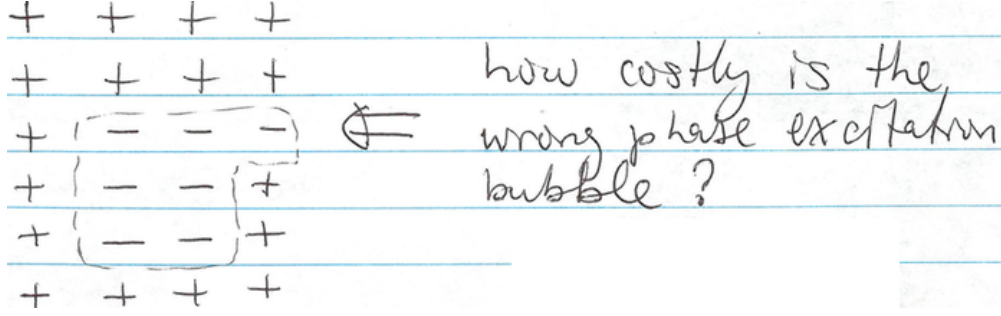 + + + +
+ + + + how costly is the
+ − − − ⇐ wrong phase excitation
+ − − + bubble?
+ − − +
+ + + +